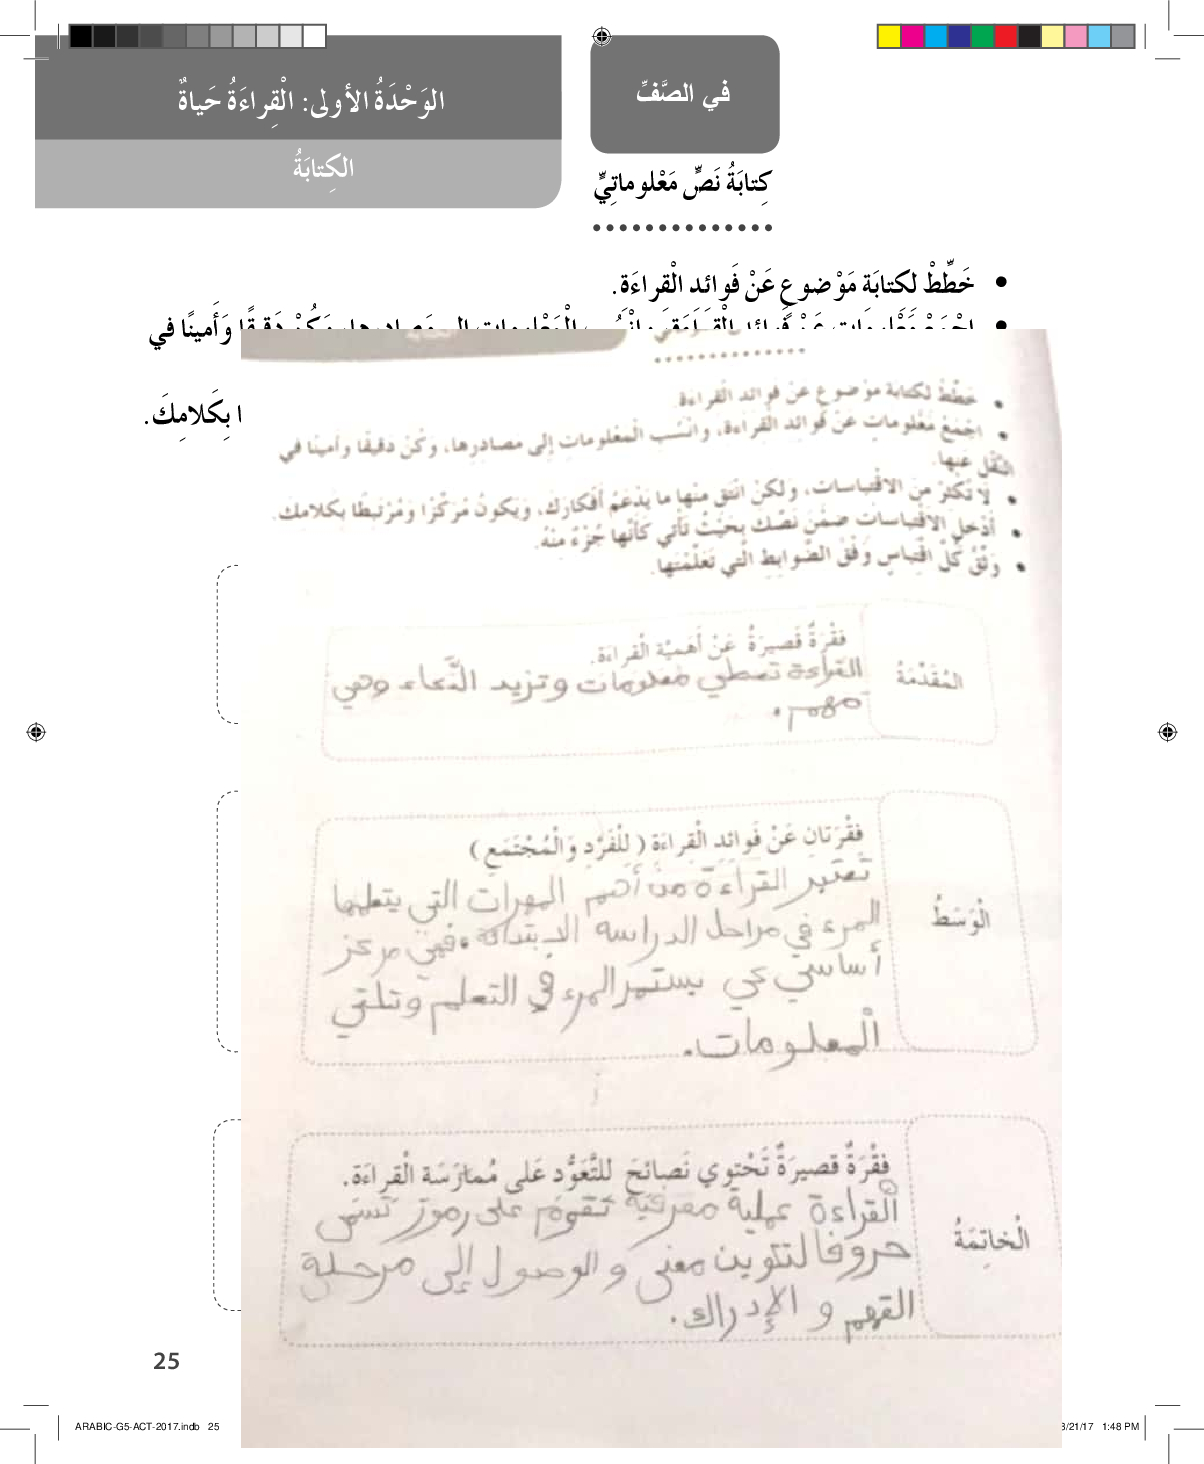 في الصَّفِّ
الوَحْدَةُ الأولى: الْقِراءَةُ حَياةٌ
الكِتابَةُ
كِتابَةُ نَصٍّ مَعْلوماتِيٍّ
خَطِّطْ لِكِتابَةِ مَوْضوعٍ عَنْ فَوائِدِ الْقِراءَةِ.
اجْمَعْ مَعْلوماتٍ عَنْ فَوائِدِ الْقِراءَةِ، وانْسُبِ الْمَعْلوماتِ إلى مَصادِرِها، وَكُنْ دَقيقًا وَأَمينًا في
ا بِكَلامِكَ.
خَطِّطْ لكتابة مَوْضوعٍ عَنْ فَوائد الْقراءَة.
اجْمَعْ مَعْلوماتٍ عَنْ فَوائد القراءَة، وانْسُب الْمَعْلومات إلى مصادرها، وكُنْ دقيقًا وأمينًا في
النَّقْل عَنها.
لا تُكْثِرْ منَ الاقْتباسات، ولكن انْتَق منْها ما يَدْعَمُ أفْكارَكَ، ويَكونُ مُرَكَّزًا ومُرْتَبطًا بكَلامكَ.
أدْخل الاقْتباسات ضمْنَ نَصِّكَ بحَيْثُ تَأتي كَأنَّها جُزْءٌ منْهُ.
وَثِّقْ كُلَّ اقْتباسٍ وَفْقَ الضَّوابط الَّتي تَعَلَّمْتَها.
الْمُقَدِّمَةُ
فِقْرَةٌ قَصيرَةٌ عَنْ أَهَمِّيَّة الْقراءَة.
القراءة تعطي معلومات وتزيد الذَّكاء وهي
مهم.
الْوَسَطُ
فِقْرَتانِ عَنْ فَوائِدِ الْقِراءَةِ (لِلْفَرْدِ وَالْمُجْتَمَعِ)
تعتبر القراءة من أهم المهرات التي يتعلمها
المرء في مراحل الدراسة الابتدائة، فهي مركز
أساسي كي يستمر المرء في التعلم وتلقي
المعلومات.
الْخاتِمَةُ
فِقْرَةٌ قَصيرَةٌ تَحْتوي نَصائِحَ لِلتَّعَوُّدِ عَلى مُمارَسَة الْقِراءَةِ.
القراءة عملية معرفية تقوم على رموز تسمى
حروفا لتكوين معنى والوصول إلى مرحلة
الفهم و الإدراك.
25
ARABIC-G5-ACT-2017.indb 25
/21/17 1:48 PM